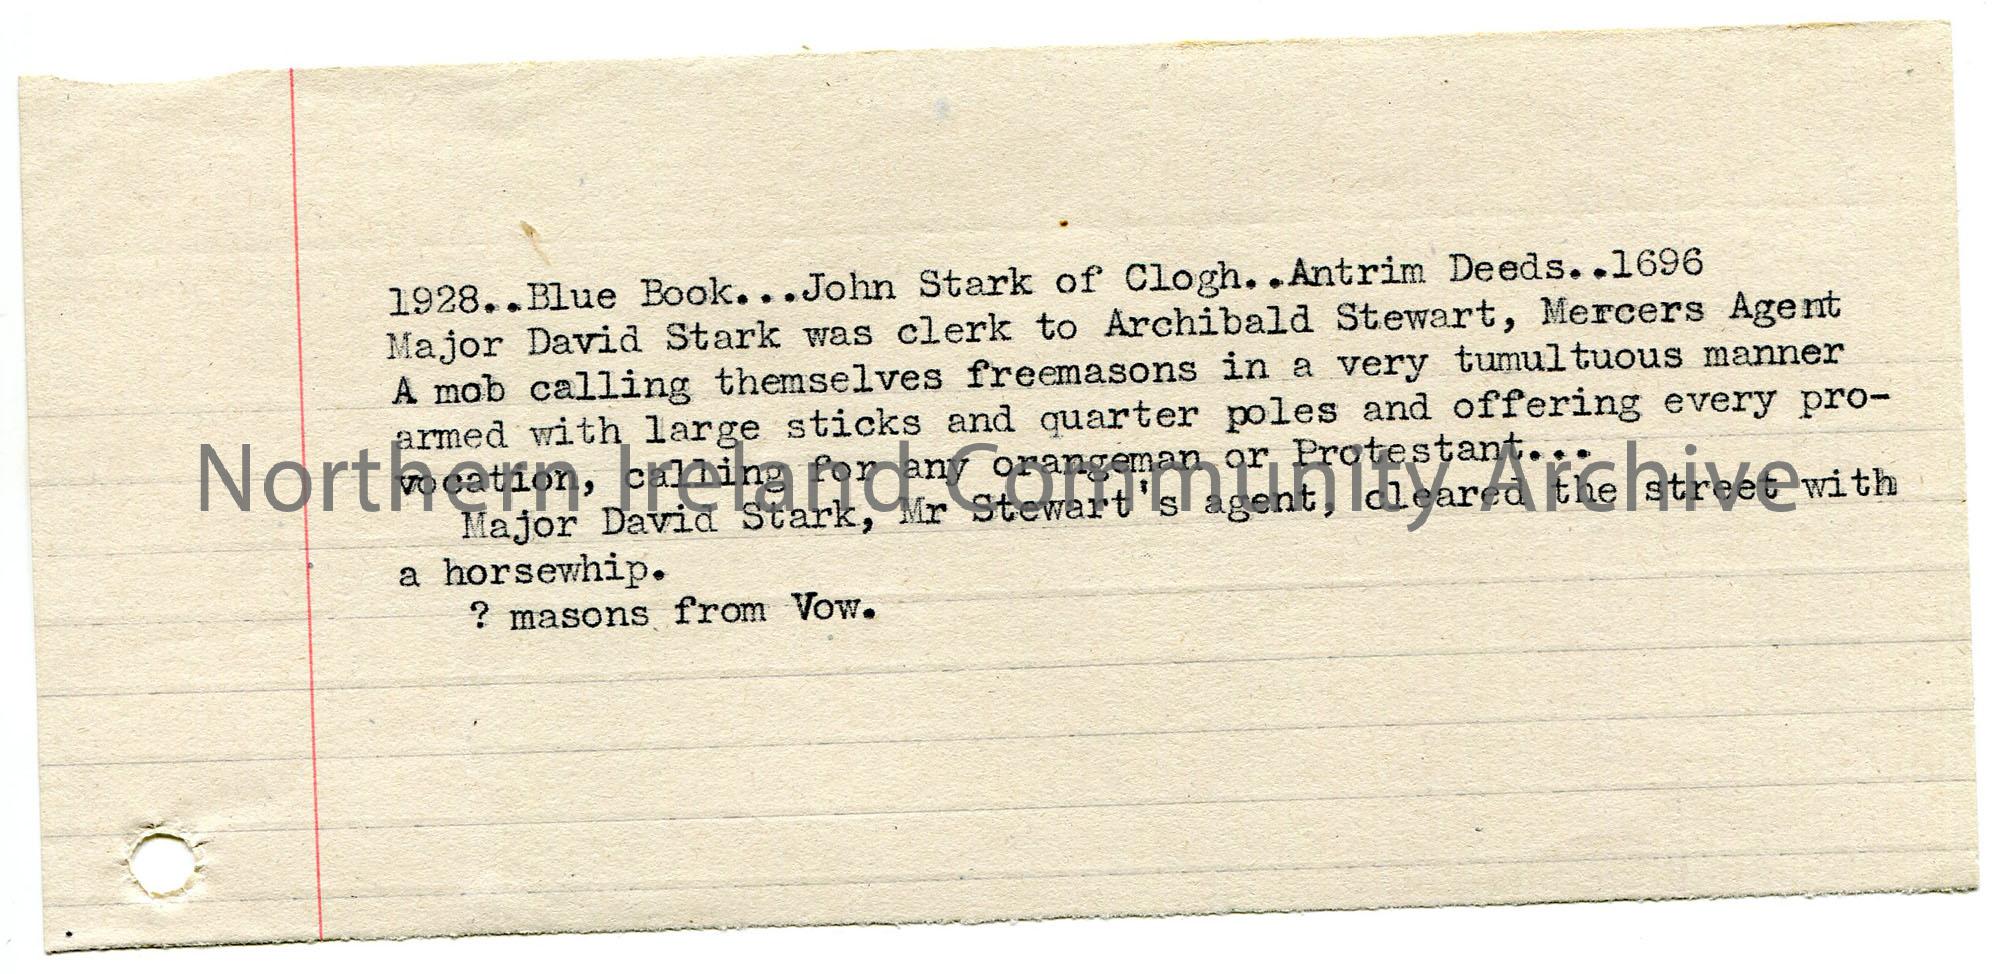 1928..Blue Book...John Stark of Clogh..Antrim Deeds..1696
Major David Stark was clerk to Archibald Stewart, Mercers Agent
A mob calling themselves freemasons in a very tumultuous manner
armed with large sticks and quarter poles and offering every pro-
vocation, calling for any orangeman or Protestant...
Major David Stark, Mr Stewart's agent, cleared the street with
a horsewhip.
? masons from Vow.
Northern Ireland Community Archive